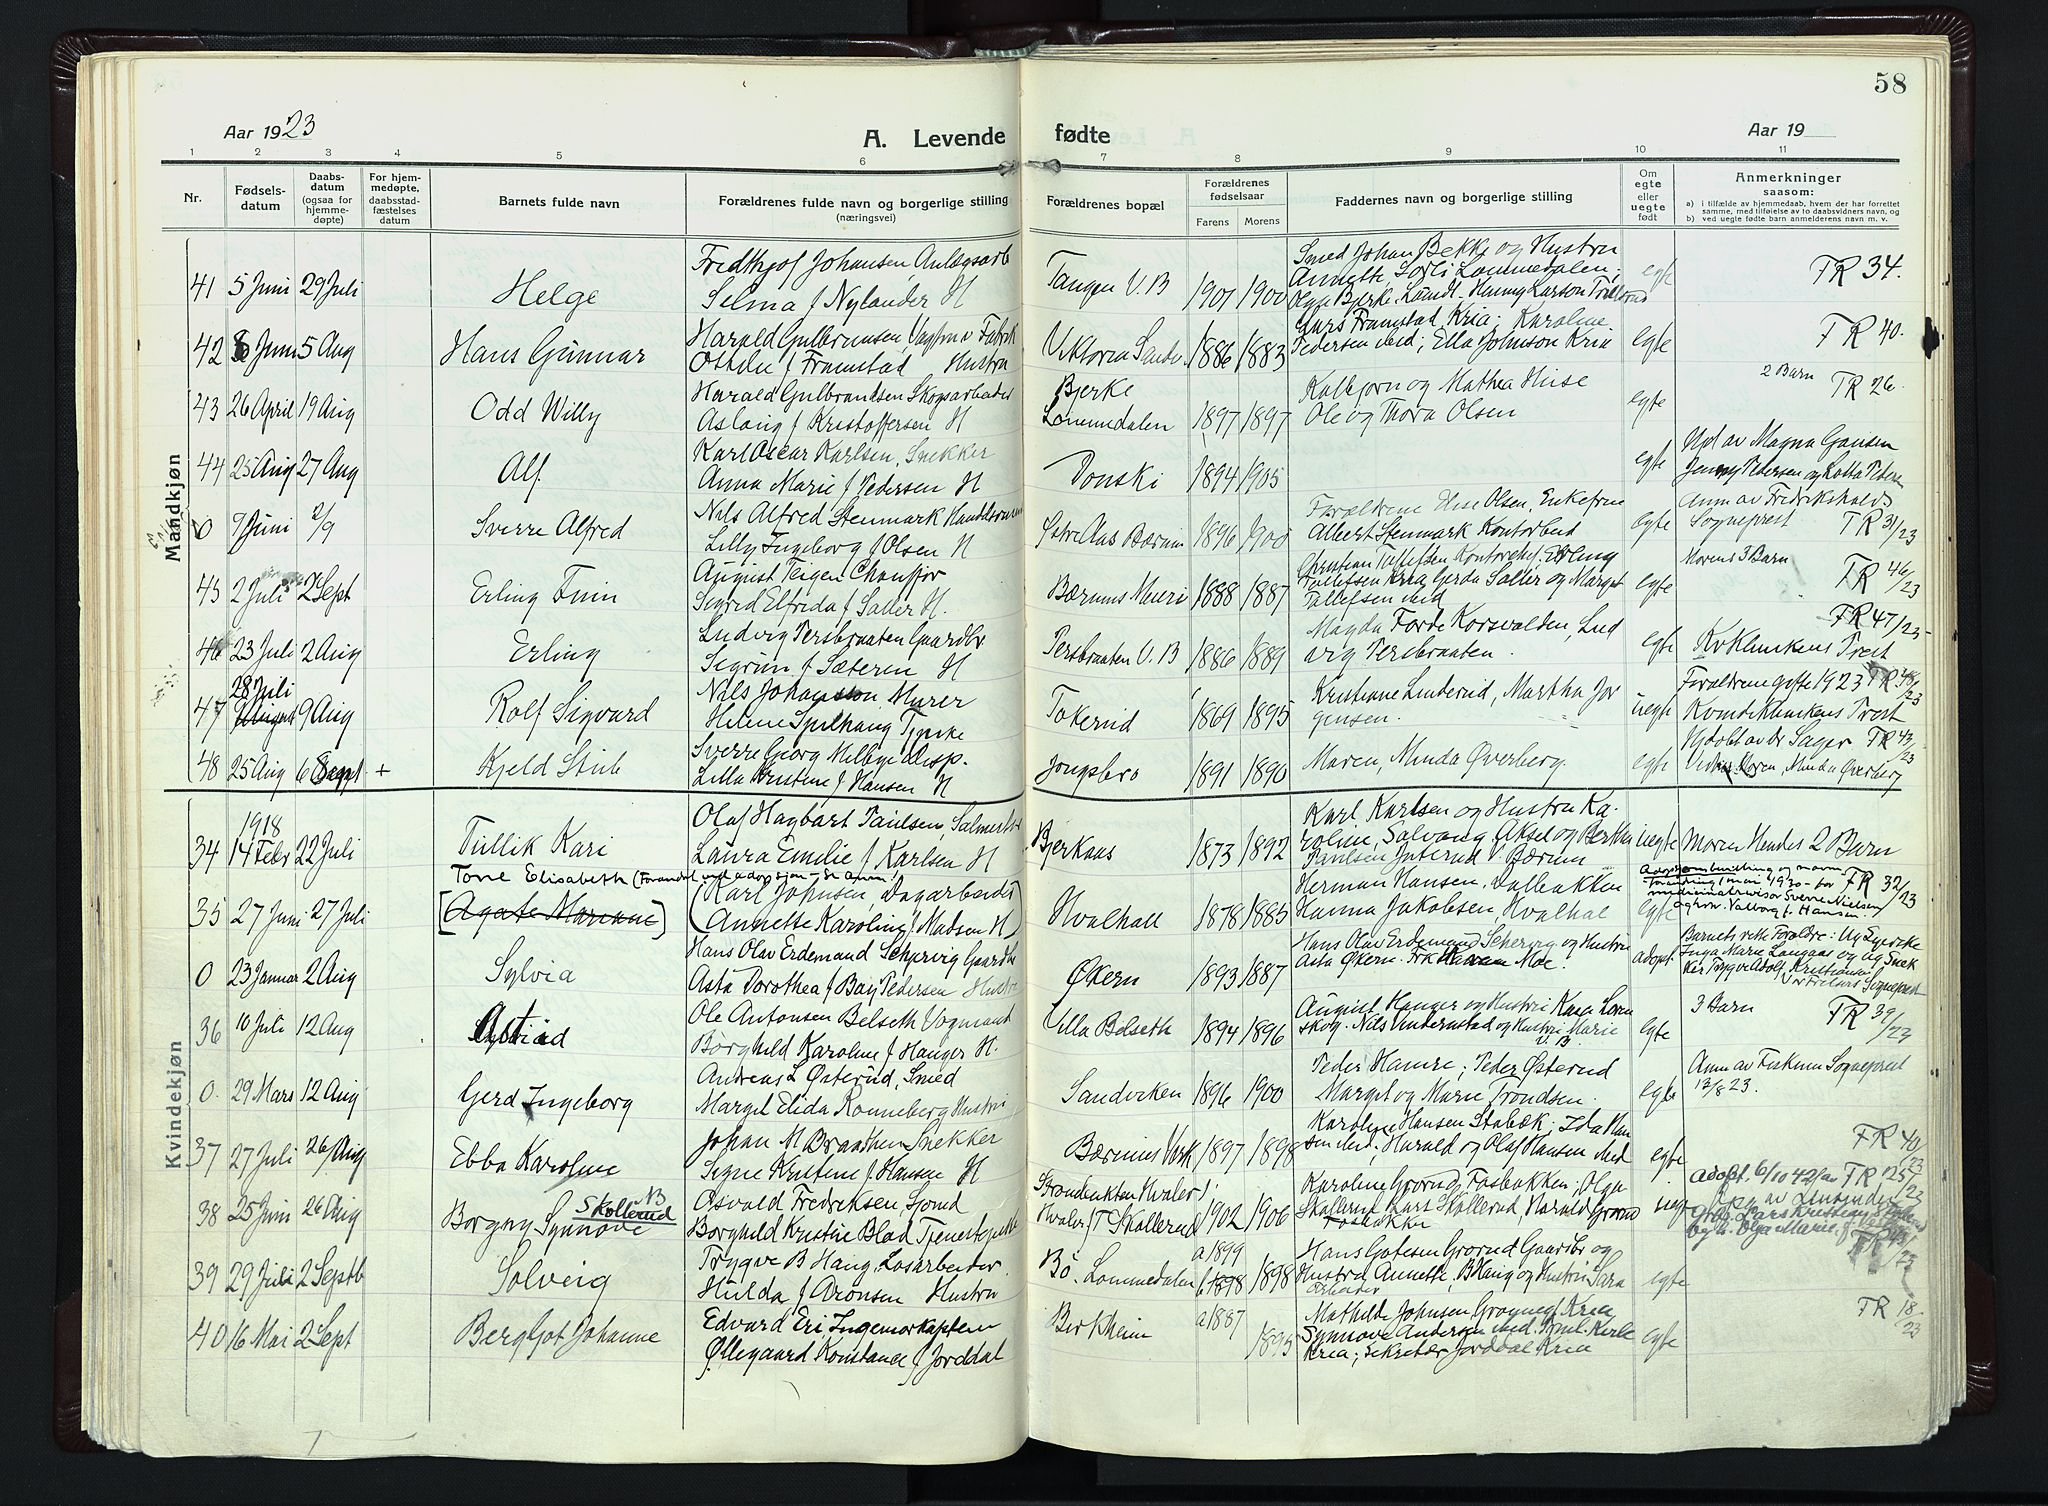 58
Aar 1923
A. Levende fødte
Aar 19
1 2 3 4 5 6 7 8 9 10 11
Nr.
Fødsels-
datum
Daabs-
datum
(ogsaa for
hjemme-
døpte)
For hjem-
medøpte,
daabsstad-
fæstelses
datum
Barnets fulde navn
Forældrenes fulde navn og borgerlige stilling
(næringsvei)
Forældrenes bopæl
Forældrenes
fødselsaar
Farens Morens
Faddernes navn og borgerlige stilling
Om
egte
eller
uegte
født
Anmerkninger
saasom:
a) i tilfælde av hjemmedaab, hvem der har forrettet
samme, med tilføielse av to daabsvidners navn, og
b) ved uegte fødte barn anmelderens navn m. v.
Mandkjøn
Fredthjof Johansen Anlægsarb
41 5 Juni 29 Juli Helge Selma f Nylander H
Tangen V. B 1901 1900
Smed Johan Bekke og Hustru
Annette Lommedalen,
Olga Bjerke, Henny Larson
egte
TR 34.
42 Juni 5 Aug Hans Gunnar
Harald Gulbrunsen, Fabrik
f Framstad Hustru
Viktoria 1886 1883
Lars Framstad Kria; Karoline
Pedersen ibid; Ella Johnson Kria
egte
TR 40.
43 26 April 19 Aug Odd Willy
Harald Gulbrandsen Skogsarbeider
Aslaug f Kristoffersen H
Bjerke
Lommedalen 1897 1897
Kolbjørn og Mathea Huse
Ole og Thora Olsen
egte
2 Barn TR 26.
44 25 Aug 27 Aug Alf.
Karl Oscar Karlsen, Snekker
Anna Marie f Pedersen H
Donski 1894 1905
egte
av Magna Gansen
Jenny Pedersen og Lotta Petersen
0 7 Juni 2/9 Sverre Alfred
Nils Alfred Stenmark
Lilly Ingeborg f Olsen H
Østre Aas Bærum 1896 1900
Forældrene Olsen, Enkefrue
Albert Stenmark Kontorbud
egte
Anm av Fredrikshalds
Sogneprest TR 31/23
45 2 Juli 2 Sept Erling Finn
August Teigen Chauffør
Sigrid Elfrida f Saller H.
Bærums 1888 1887
Christian Tollefsen Erling
Tollefsen Kria Gerda Saller og Margot
Tollefsen ibid
egte
Morens 3 Barn TR 46/23
46 23 Juli 2 Aug Erling
Ludvig Persbraaten Gaardbr
Sigrun f Sæteren H
Persbraaten V. B 1886 1889
Magda Forde Korsvolden, Lud
vig Persbraaten.
egte
TR 47/23
Kvklinikens Prest
28 Juli
47 9 Aug Rolf Sigvard
Nils Johansson Murer
Helene Spilhaug
Tokerud 1869 1895
Kristiane Linderud, Martha Jor
gensen.
uegte
Forældrene gifte 1923 TR 48/23
Kvindeklinikens Prest
48 25 Aug 6 Sept + Kjeld Stub
Sverre Georg Melbye Disp.
Lilla Kristine f Hansen H
Jongsbro 1891 1890
Maren, Minda Øverberg.
egte
Hjdøbt av Dr Sager TR 43/23
Maren, Minda Øverberg
Kvindekjøn
1918
34 14 Febr 22 Juli Tullik Kari
Olaf Hagbart Paulsen,
Laura Emilie f Karlsen H
Bjerkaas 1873 1892
Karl Karlsen og Hustru Ka-
roline, Solvang, Aksel og
Paulsen V. Bærum
uegte
Moren Hendes 2 Barn
Tone Elisabeth (Forandret ved adopsjon - se anm.)
35 27 Juni 27 Juli [Agate Mariane]
(Karl Johnsen, Dagarbeider)
(Annette Karoline f. Madsen H)
Hvalhall 1878 1885
Herman Hansen, Dalbakken
Hanna Jakobsen, Hvalhal
egte
1 mai 1930 - for TR 32/23
Sverre Nielsen
og hv. Valborg f. Hansen.
0 23 Januar 2 Aug Sylvia
Hans Olav Erdemand Schervig
Asta Dorothea f Bay Pedersen Hustru
Økern 1893 1887
Hans Olav Erdemand Schervig og Hustru
Asta Økern. Frk Moe.
adopt.
Barnets rette Forældre: Ug
Inga Marie Langaas og Ug Snek
ker Trygve Adolf Kristiansen
Sogneprest
36 10 Juli 12 Aug Astrid
Ole Antonsen Belseth Vognmand
Borghild Karoline f Hanger H.
Villa Belseth 1894 1896
August Hanger og Hustru Kaja Loren
skog. Nils og Hustru Marie
V. B.
egte
3 Barn TR 39/23
0. 29 Mars 12 Aug Gerd Ingeborg
Andreas L Østerud, Smed
Margit Elida Ronneberg Hustru
Sandviken 1896 1900
Peder Hamre; Peder Østerud
Margit og Marie Trondsen.
egte
Anm av Sogneprest
13/8 23.
37 27 Juli 26 Aug Ebba Karoline
Johan M Braathen Snekker
Signe Kristine f Hansen H
Bærums Verk 1897 1898
Karoline Hansen Stabæk; Ida Han
sen ibid; Harald og Olaf Hansen ibid
egte
TR 40/23
38 25 Juni 26 Aug Borgny Synnøve Skollerud NB
Osvald Fredriksen, Sjømd
Borghild Kristine Blad
Strandenkten Hvaler
Hvaler / T Skollerud 1902 1906
Karoline Grorud Fosbakken; Olga
Skollerud, Lars Skollerud, Harald Grorud
Fosbakken
ueg
Adopt. 6/10 42 TR 125/23
Lars Kristian
Olga Marie
39 29 Juli 2 Septb Solveig
Trygve B Haug, Losarbeider
Hulda f Aronsen Hustru
Bø. Lommedalen a 1899 b 1898 1898
Hans Gotesen Grorud Gaardbr og
Hustru Annette, B Haug og Hustru Sara
Arbeider
egte
TR 43/23
40 16 Mai 2 Sept Bergljot Johanne
Edvard Eri Ingeniørkaptein
Øllegaard Konstance f Jorddal
Birkheim a 1887 1895
Mathilde Johnsen Grogneg Kria
Synnøve Andersen ibid. Emil Kerle
Kria; Sekretær Jorddal Kria
egte
TR 18/23